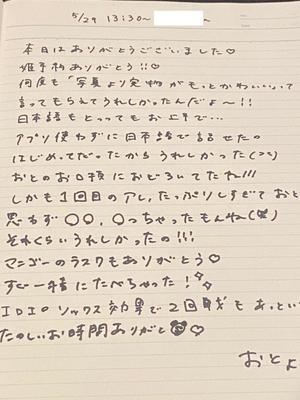 5/29 13:30〜
本日はありがとうございました♡
姫予約ありがとう!!♡
何度も「写真より実物がもっとかわいい」って
言ってもらえてうれしかったんだよ〜!!
日本語もとってもお上手で…
アプリ使わずに日本語で話せたの
はじめてだったからうれしかった(>᎑<)
おとのお口技におどろいてたね!!!
しかも1回目のアレ、たっぷりしすぎておと
思わず〇〇、〇っちゃったもんね(笑)
それくらいうれしかったの!!!
マンゴーのラスクもありがとう♡
すぐ一緒にたべちゃった!✧
ソックス効果で2回戦もあっとい
たのしいお時間ありがと♡